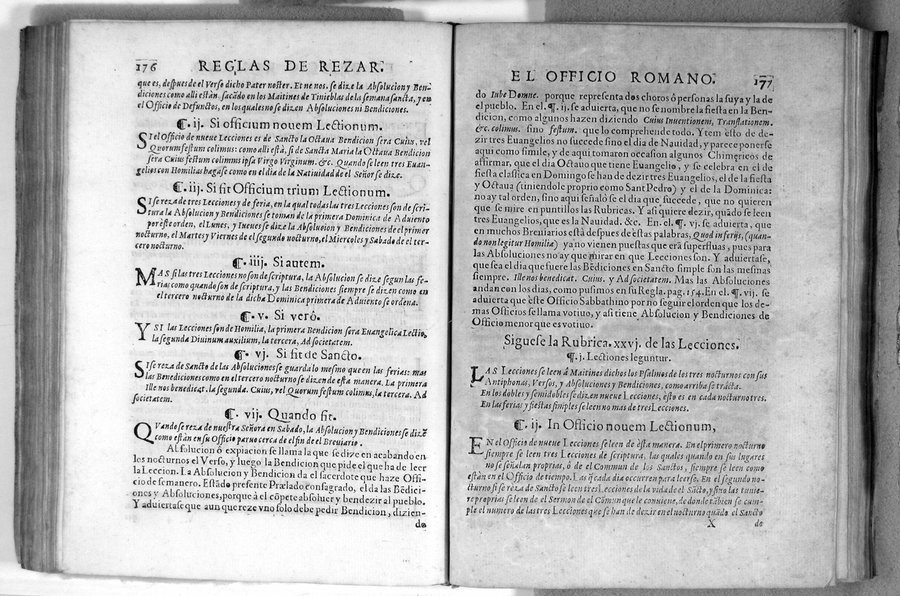 176 REGLAS DE REZAR.
que es, despues de el Verso dicho Pater noster. Et ne nos. se dize la Absolucion y Ben-
diciones como alli están. sacãdo en los Maitines de Tinieblas de la semana sancta, y en
el Officio de Defunctos, en los quales no se dizen Absoluciones ni Bendiciones.
¶. ij. Si officium nouem Lectionum.
SI el Officio de nueue Lecciones es de Sancto la Octaua Bendicion sera Cuius, vel
Quorum festum colimus: como alli està, si de Sancta Maria la Octaua Bendicion
sera Cuius festum colimus ipsa Virgo Virginum. &c. Quando se leen tres Euan-
gelios con Homilias hagase como en el dia de la Natiuidad de el Señor se dize.
¶. iij. Si sit Officium trium Lectionum.
SI se reza de tres Lecciones y de feria, en la qual todas las tres Lecciones son de scri-
tura la Absolucion y Bendiciones se toman de la primera Dominica de Aduiento
por este orden, el Lunes, y Iueues se dize la Absolucion y Bendiciones de el primer
nocturno, el Martes y Viernes de el segundo nocturno, el Miercoles y Sabado de el ter-
cero nocturno.
¶. iiij. Si autem.
MAS si las tres Lecciones no son de scriptura, la Absolucion se dize segun las fe-
rias como quando son de scriptura, y las Bendiciones siempre se dizen como en
el tercero nocturno de la dicha Dominica primera de Aduiento se ordena.
¶. v. Si verò.
Y SI las Lecciones son de Homilia, la primera Bendicion sera Euangelica Lectio,
la segunda Diuinum auxilium, la tercera, Ad societatem.
¶. vj. Si fit de Sancto.
SI se reza de Sancto de las Absoluciones se guarda lo mesmo que en las ferias: mas
las Bendiciones como en el tercero nocturno se dizen de esta manera. La primera
Ille nos benedicat. la segunda. Cuius, vel Quorum festum colimus, la tercera. Ad
societatem.
¶. vij. Quando fit.
QVando se reza de nuestra Señora en Sabado, la Absolucion y Bendiciones se dizẽ
como estàn en su Officio paruo cerca de el fin de el Breuiario.
Absolucion ò expiacion se llama la que se dize en acabando en
los nocturnos el Verso, y luego la Bendicion que pide el que ha de leer
la Leccion. La Absolucion y Bendicion da el sacerdote que haze Offi-
cio de semanero. Estãdo presente Prælado consagrado, el da las Bẽdici-
ones y Absoluciones, porque à el cõpete absoluer y bendezir al pueblo.
Y aduiertase que aunque reze vno solo debe pedir Bendicion, dizien-
do
EL OFFICIO ROMANO. 177
do Iube Domne. porque representa dos choros ò personas la suya y la de
el pueblo. En el. ¶. ij. se aduierta, que no se nombre la fiesta en la Ben-
dicion, como algunos hazen diziendo Cuius Inuentionem, Translationem.
&c. colimus. sino festum. que lo comprehende todo. Y tem esto de de-
zir tres Euangelios no succede sino el dia de Nauidad, y parece ponerse
aqui como simile, y de aqui tomaron occasion algunos Chimericos de
affirmar, que el dia Octauo que tiene Euangelio, y se celebra en el de
fiesta classica en Domingo se han de dezir tres Euangelios, el de la fiesta
y Octaua (siniendole proprio como Sant Pedro) y el de la Dominica:
no ay tal orden, sino aqui señalò se el dia que succede, que no quieren
que se mire en puntillos las Rubricas. Y asi quiere dezir, quãdo se leen
tres Euangelios, que es la Nauidad. &c. En el. ¶. vj. se aduierta, que
en muchos Breuiarios està despues de estas palabras, Quod in ferijs, (quan-
do non legitur Homilia) ya no vienen puestas que era superfluas, pues para
las Absoluciones no ay que mirar en que Lecciones son. Y aduiertase,
que sea el dia que fuere las Bẽdiciones en Sancto simple son las mesinas
siempre. Ille nos benedicat. Cuius. y Ad societatem. Mas las Absoluciones
andan con los dias, como pusimos en su Regla. pag. 154. En el. ¶. vij. se
aduierta que este Officio Sabbathino por no seguir el orden que los de-
mas Officios se llama votiuo, y asi tiene Absolucion y Bendiciones de
Officio menor que es votiuo.
Siguese la Rubrica. xxvj. de las Lecciones.
¶. j. Lectiones leguntur.
LAS Lecciones se leen à Maitines dichos los Psalmos de los tres nocturnos con sus
Antiphonas, Versos, y Absoluciones y Bendiciones, como arriba se tràcta.
En los dobles y semidobles se dizen nueue Lecciones, esto es en cada nocturno tres.
En las ferias y fiestas simples se leen no mas de tres Lecciones.
¶. ij. In Officio nouem Lectionum,
EN el Officio de nueue Lecciones se leen de èsta manera. En el primero nocturno
siempre se leen tres Lecciones de scriptura, las quales quando en sus lugares
no se señalan proprias, ò de el Commun de los Sanctos, siempre se leen como
estàn en el Officio de tiempo. Las q̃ cada dia occurren para leerse. En el segundo no-
cturno si se reza de Sancto se leen tres Lecciones de la vida de el Sãcto, y sino las tuuie-
re proprias se leen de el Sermon de el Cõmun que le conuiene, de donde tãbien se cum-
ple el numero de las tres Lecciones que se han de dezir en el nocturno quãdo el Sancto
X do